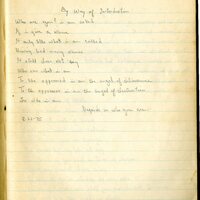 By Way of Introduction
Who are you? i am asked
If i give a name
It only tells what i am called
Having had many names
It still does not say
Who nor what i am
To the oppressed i am the angel of deliverance
To the oppressor i am the angel of destruction
So who i am
Depends on who you are.